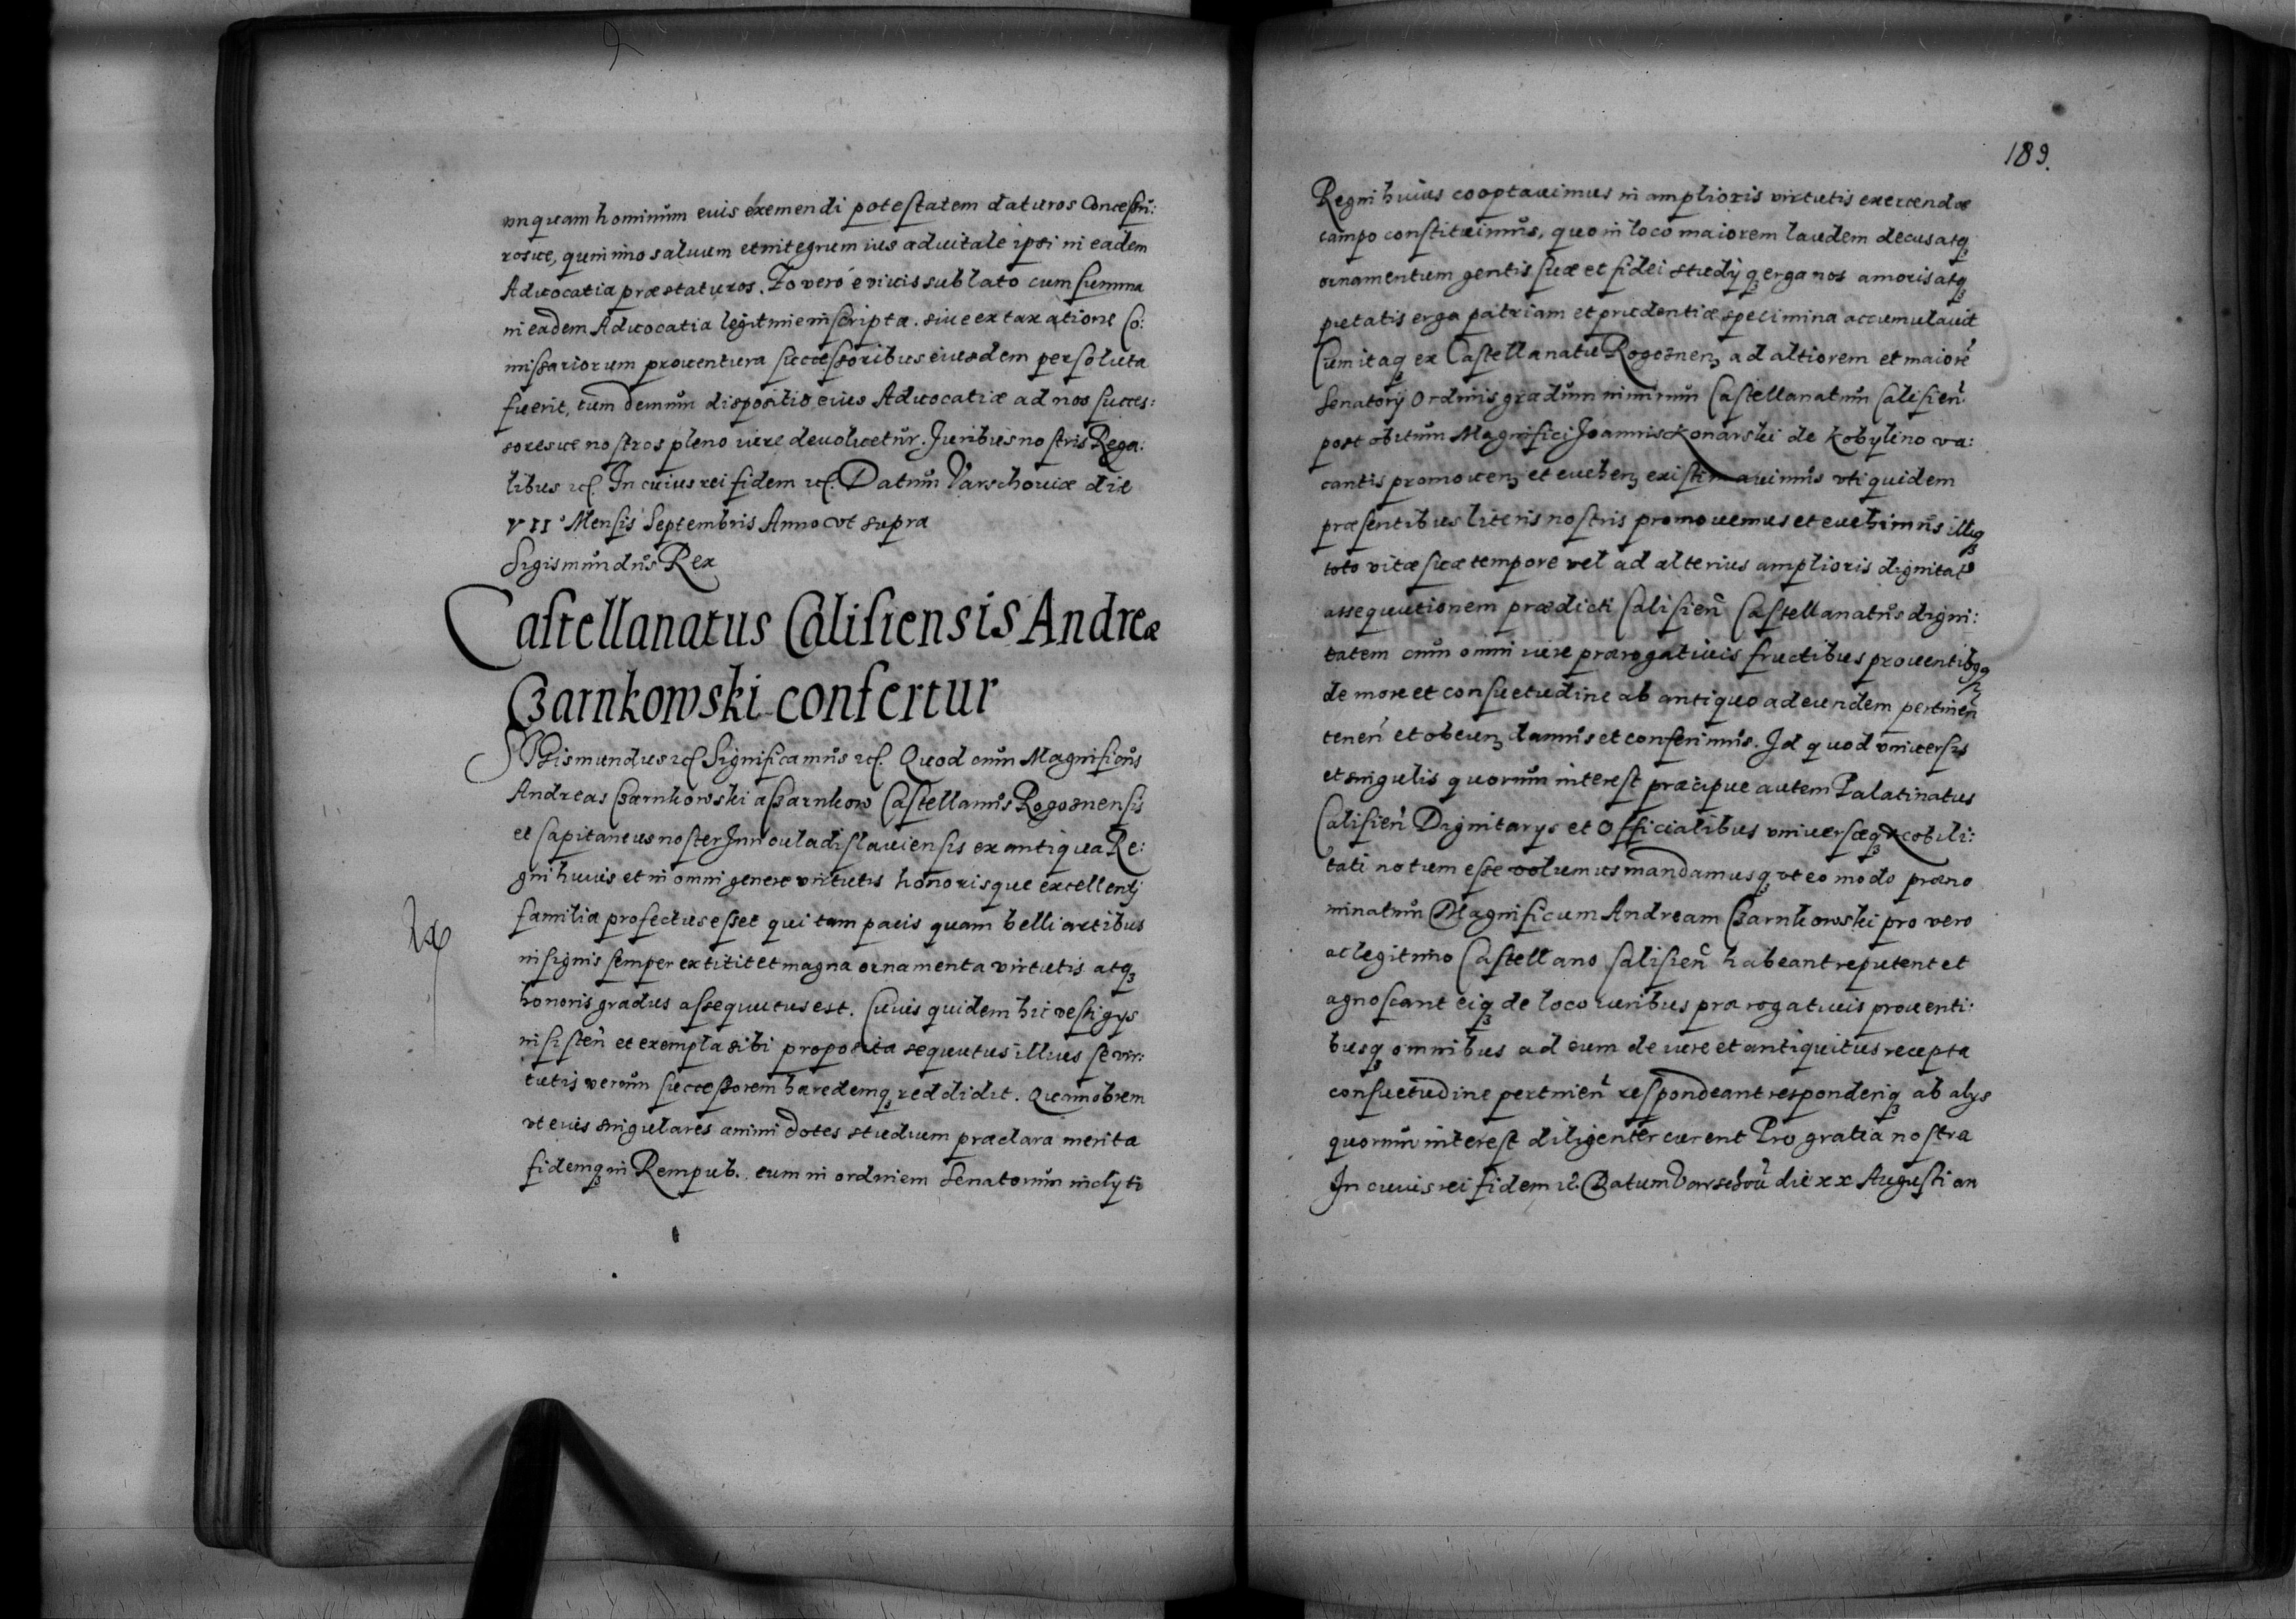 vnquam hominum euis exemendi potestatem daturos Concessu:
rosue, quinimo saluum et integrum ius aduitale ipsi in eadem
Aduocatia præstaturos. Eo vero è viuis sublato cum summa
in eadem Aduocatia legitime inscripta. siue ex taxatione Co:
missariorum prouentura successoribus eiusdem persoluta
fuerit, tum demum dispositio euis Aduocatiæ ad nos succes:
soresue nostros pleno iure deuoluetur. Juribus nostris Rega:
libus etc. In cuius rei fidem etc. Datum Varschouiæ die
VII Mensis Septembris Anno vt supra
Sigismundus Rex
Castellanatus Calisiensis Andreæ
Czarnkowski confertur
SIgismundus etc Significamus etc. Quod cum Magnificus
Andreas Czarnkowski a Czarnkow Castellanus Rogosnensis
et Capitaneus noster Innouladislauiensis ex antiqua Re:
gni huius et in omni genere virtutis honorisque excellenti
familia profectus esset qui tam pacis quam belli artibus
insignis semper extitit et magna ornamenta virtutis atq3
honoris gradus assequutus est. Cuius quidem hic vestigys
insisteñ et exempla sibi proposita sequutus illius se vir:
tutis verum successorem hæredemq3 reddidit. Quamobrem
vt euis singulares animi dotes studium præclara merita
fidemq3 in Rempub. eum in ordinem Senatorum inclyti
189.
Regni huius cooptauimus in amplioris virtutis exercendæ
campo constituimus, quo in loco maiorem laudem decus atq3
ornamentum gentis suæ et fidei study q3 erga nos amoris atq3
pietatis erga patriam et prudentiæ specimina accumulauit
Cum itaq3 ex Castellanatu Rogosnen3 ad altiorem et maiorẽ
Senatory Ordinis gradum nimirum Castellanatum Calisieñ
post obitum Magnifici Joannis Konarski de Kobylino va:
cantis promouen3 et euehen3 existimauimus vti quidem
præsentibus literis nostris promouemus et euehimus illiq3
toto vitæ suæ tempore vel ad alterius amplioris dignitat
assequutionem prædicti Calisieñ Castellanatus digni:
tatem cum omni iure prærogatiuis fructibus prouentibq3
de more et consuetudine ab antiquo ad eundem pertineñ
teneñ et obeun3 damus et conferimus. Id quod vniuersis
et singulis quorum interest præcipue autem Palatinatus
Calisieñ Dignitarys et Officialibus vniuersæq3 Nobili:
tati notum esse volumus mandamusq3 vt eo modo præno
minatum Magnificum Andream Czarnkowski pro vero
ac legitimo Castellano Calisieñ habeant reputent et
agnoscant eiq3 de loco iuribus prærogatiuis prouenti:
busq3 omnibus ad eum de iure et antiquitus recepta
consuetudine pertineñ respondeant responderiq3 ab alys
quorum interest diligenter curent Pro gratia nostra
In cuius rei fidem etc. Datum Varschouiæ die xx Augusti an